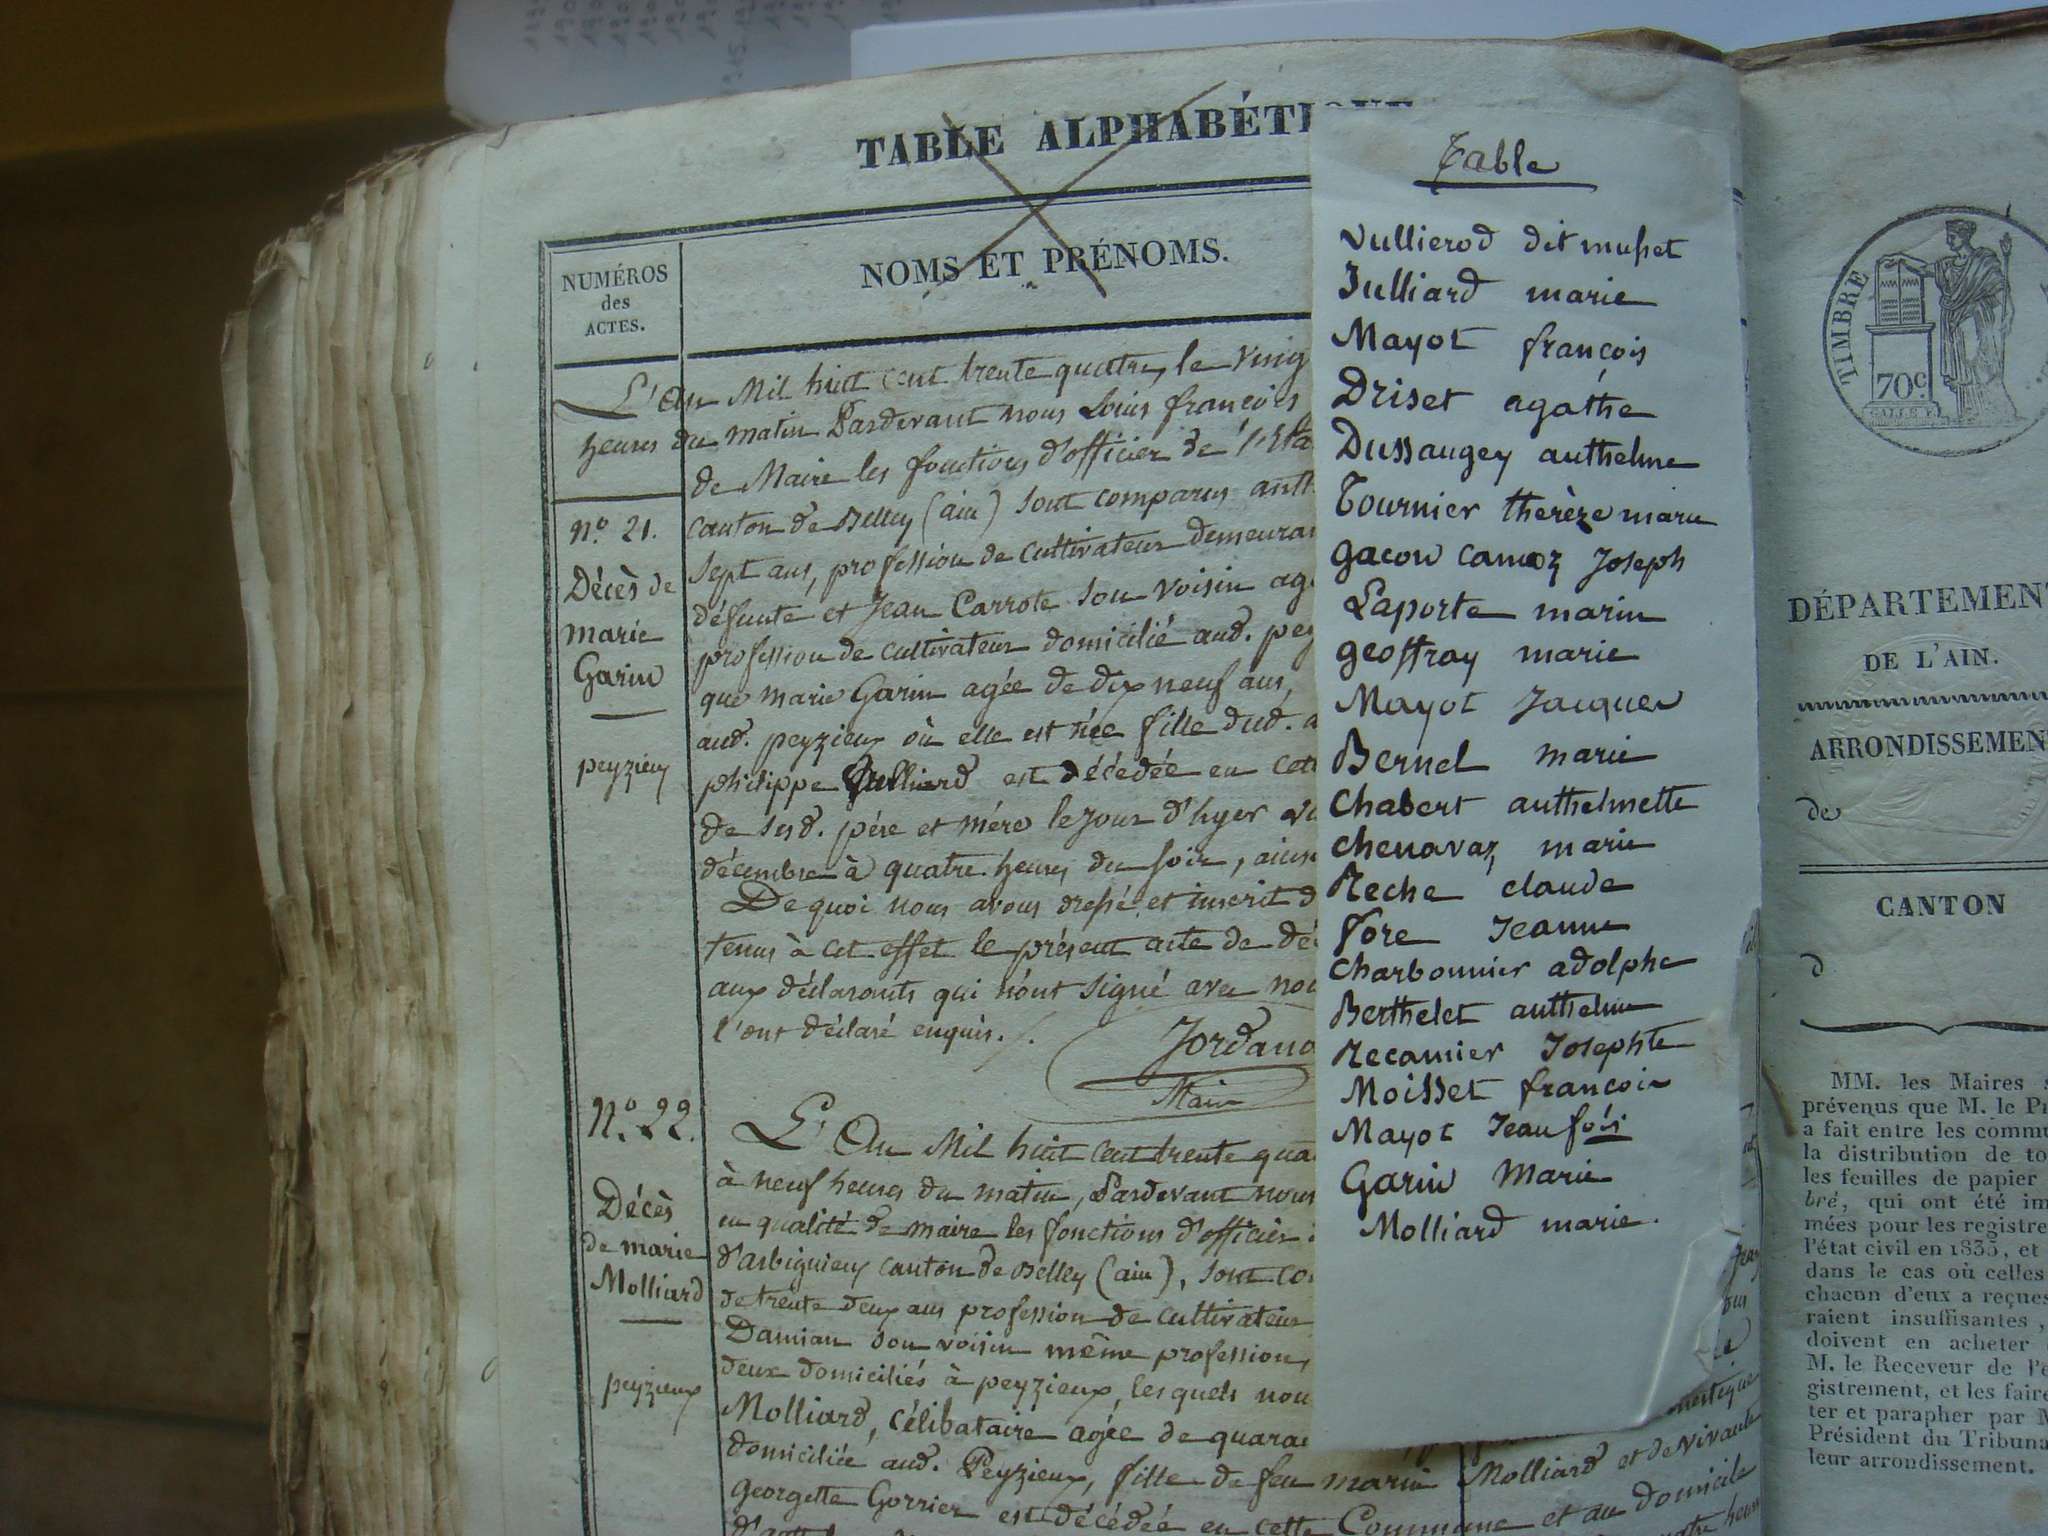 TABLE ALPHABÉTI
NUMÉROS
des
ACTES.
NOMS ET PRÉNOMS.
L'An Mil huit cent trente quatre, le Ving
heures du matin Pardevant nous Louis françois
de Maire les fonctions d'officier de l'Eta
canton de Belley (ain) sont comparus anth
sept ans, profession de cultivateur demeuran
défunte et Jean Carrote son voisin ag
profession de cultivateur domicilié aud. pey
que marie Garin agée de dix neuf ans,
aud. peyzieux où elle est née fille dud. a
philippe Julliard est décédée en cett
de sesd. père et mère le jour d'hyer
décembre à quatre heures du soir, ainsi
De quoi nous avons dressé et inscrit d
tenus à cet effet le présent acte de déc
aux déclarants qui n'ont signé avec nou
l'ont déclaré enquis.
Jordano
Maire
N.º 21.
Décès de
marie
Garin
peyzieux
N.º 22.
Décès
de marie
Molliard
peyzieux
L'An Mil huit cent trente qua
à neuf heures du matin, Pardevant nous
en qualité de maire les fonctions d'officier
d'arbignieux canton de Belley (ain), sont co
de trente deux ans profession de cultivateur
Damian son voisin même profession,
deux domiciliés à peyzieux, lesquels nou
Molliard, célibataire agée de quara
domiciliée aud. Peyzieux, fille de feu marin Molliard et de vivante
Georgette Gorrier est décédée en cette Commune et au domicile
Table
Vullierod dit musset
Julliard marie
Mayot françois
Driset agathe
Dussaugey anthelme
Tournier thérèze marie
gacon camoz Joseph
Laporte marin
geoffray marie
Mayot Jacques
Bernel marie
Chabert anthelmette
chenavaz marie
Reche claude
fore Jeanne
Charbonnier adolphe
Berthelet anthelme
Recamier Josephte
Moisset françois
Mayot Jean fóis
Garin Marie
Molliard marie.
TIMBRE
70c.
DÉPARTEMENT
DE L'AIN.
ARRONDISSEMEN
de
CANTON
d
MM. les Maires s
prévenus que M. le Pr
a fait entre les commu
la distribution de to
les feuilles de papier
bré, qui ont été im
mées pour les registre
l'état civil en 1835, et
dans le cas où celles
chacun d'eux a reçues
raient insuffisantes,
doivent en acheter
M. le Receveur de l'e
gistrement, et les faire
ter et parapher par M
Président du Tribuna
leur arrondissement.